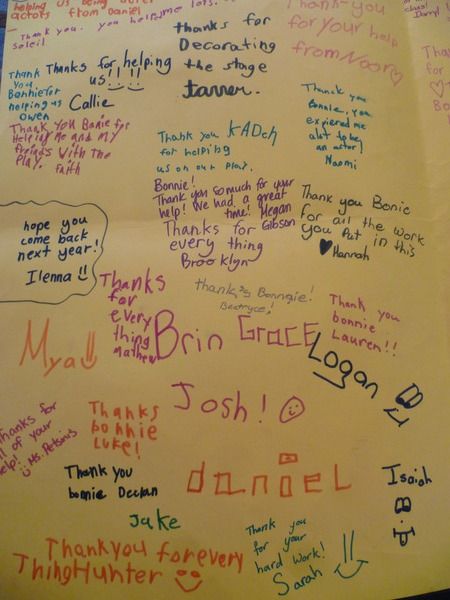 helping us being
actors from Daniel
Thank you. you help me lots.
soleil
thanks for
Decorating
the stage
tanner.
Thank-you
for your help
from Noor
Thank
You
Bonnie for
helping us
Owen
Thanks for helping
us!
Callie
Thank you
Bonnie, you
expiered me
alot to be
an actor!
Naomi
Thank You Banie for
Helping Me and my
freinds With the
Play.
faith
Thank you KADeh
for helping
us on our play.
Bonnie!
Thank you so much for your
help! We had a great
time! Megan
Gibson
Thank you Bonie
for all the work
you Put in this
Hannah
Thanks for
every thing
Brooklyn
hope you
come back
next year!
Ilenna
Thanks
for
every
thing
mathew
thank's Bonngie!
Beatryce!
Thank you
bonnie
Lauren!!
Mya
Brin
Grace
Logan
Josh!
Thanks for
all of your
help!
Ms. Petsinis
Thanks
bonnie
Luke!
Thank you
bonnie Declan
daniel
Isaiah
Jake
Thank you
for your
hard work!
Sarah
Thankyou forevery
Thing Hunter